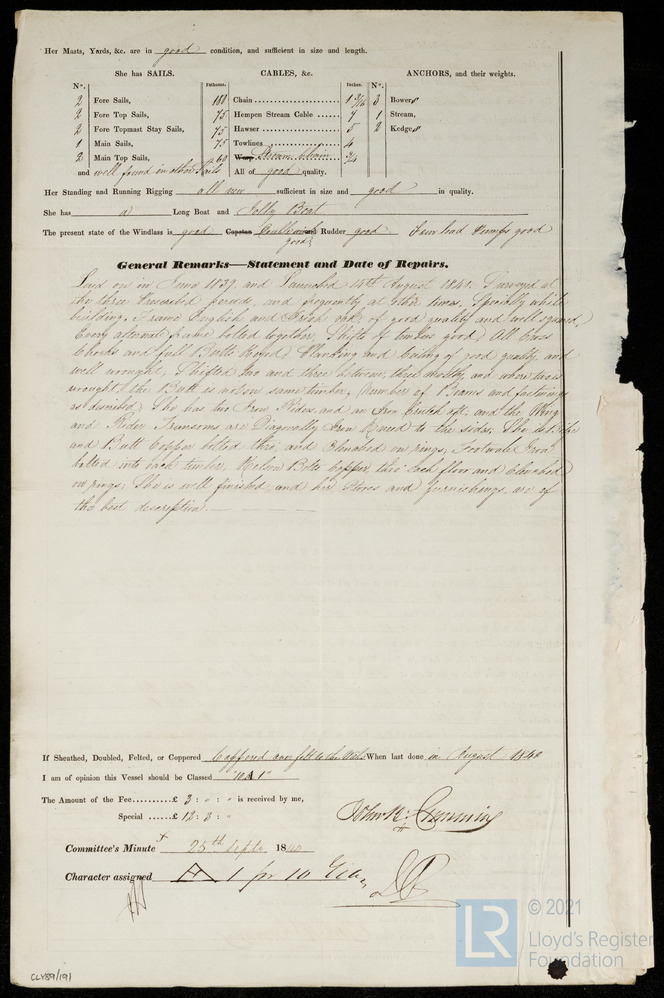 Her Masts, Yards, &c. are in good condition, and sufficient in size and length.
She has SAILS. CABLES, &c. ANCHORS, and their weights.
N°. Fathoms. Inches. N°.
2 Fore Sails, 180 Chain 1 3/16 3 Bowers
2 Fore Top Sails, 75 Hempen Stream Cable 7 1 Stream,
2 Fore Topmast Stay Sails, 75 Hawser 5 2 Kedges
1 Main Sails, 75 Towlines 4
2 Main Top Sails, 60 Warp Stream Chain 3/4
and well found in other Sails All of good quality.
Her Standing and Running Rigging all new sufficient in size and good in quality.
She has a Long Boat and Jolly Boat
The present state of the Windlass is good Capstan good and Rudder good Pumps good
General Remarks—Statement and Date of Repairs.
Laid on in June 1839, and Launched 14th August 1840. Surveyed at
the three Prescribed periods, and frequently at other times, Specially while
building. Frame English and Oak of good quality and well squared,
Every alternate frame bolted together, Shifts of timbers good. All
Chocks and full Butts Planking and Ceiling of good quality, and
well wrought, Shifted two and three between, three mostly, and where two is
wrought, the Butt is not on same timber, Number of Beams and fastenings
as described. She has two Iron Riders and an Iron Crutch aft, and the Wing
and Rider Transoms are Diagonally Iron Kneed to the sides, She is
and Butt Copper bolted thro' and Clenched on rings, Footwales Iron
bolted into each timber, Kelson Bolts Copper, thro' each floor and Clenched
on rings; She is well finished and her Stores and furnishings are of
the best description.
If Sheathed, Doubled, Felted, or Coppered Coppered over felt to the Wales When last done in August 1840
I am of opinion this Vessel should be Classed "10 A 1"
The Amount of the Fee..........£ 3 : " : " is received by me,
Special ......£ 12 : 3 : "
John Cumming
Committee's Minute 25th Septr 1840
Character assigned A 1 for 10 Years
LR © 2021
Lloyd's Register
Foundation
CLY89/191